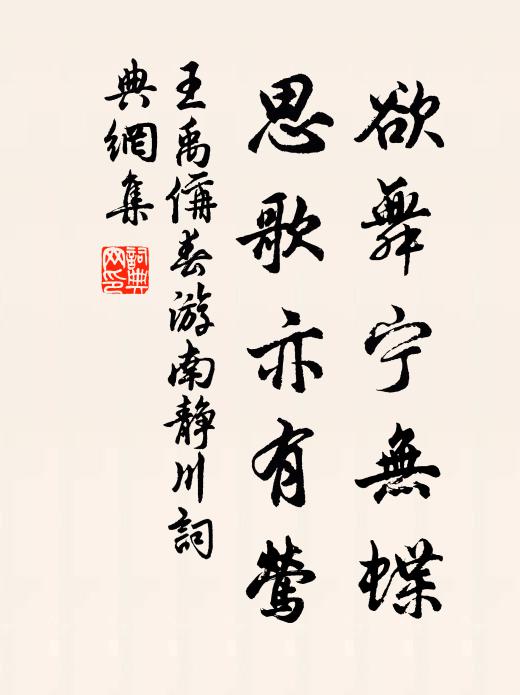 欲舞宁無蝶
思歌亦有莺
王禹偁春游南静川詞
典網集
詞典網印